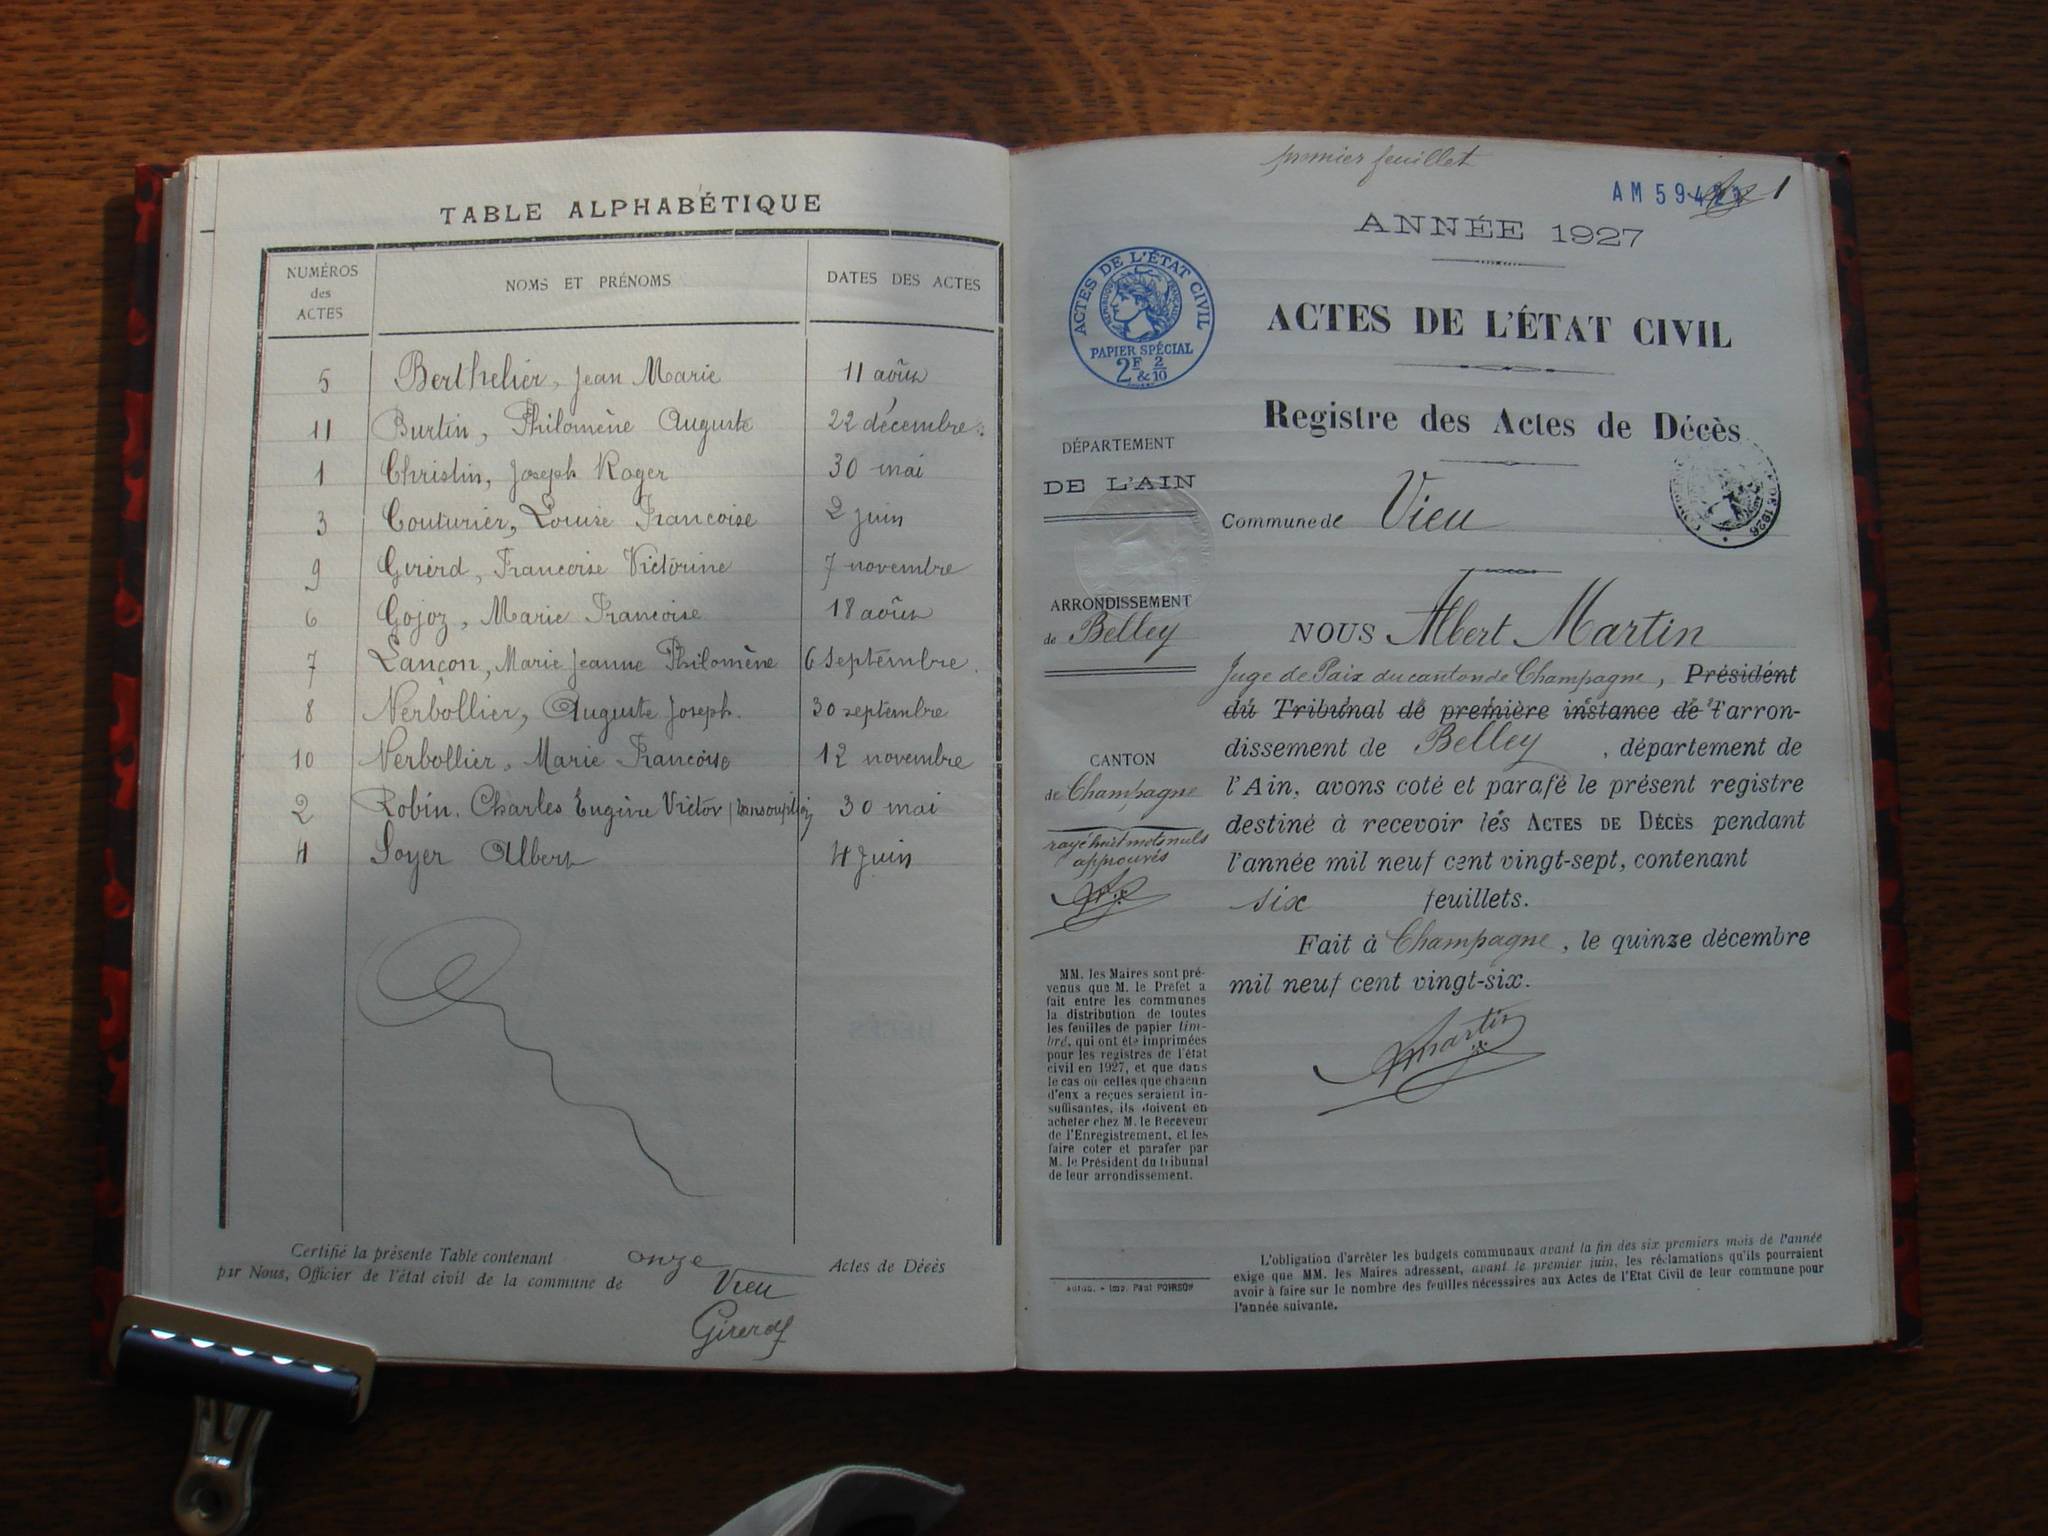 TABLE ALPHABÉTIQUE
NUMÉROS des ACTES
NOMS ET PRÉNOMS
DATES DES ACTES
5 Berthelier, Jean Marie 11 août
11 Burtin, Philomène Auguste 22 décembre
1 Christin, Joseph Roger 30 mai
3 Couturier, Louise Francoise 2 juin
9 Girerd, Francoise Victorine 7 novembre
6 Gojoz, Marie Francoise 18 août
7 Lançon, Marie Jeanne Philomène 6 Septembre
8 Nerbollier, Auguste Joseph. 30 septembre
10 Nerbollier, Marie Francoise 12 novembre
2 Robin. Charles Eugène Victor (transcription) 30 mai
4 Soyer Albert 4 Juin
Certifié la présente Table contenant onze Actes de Décès
par Nous, Officier de l'état civil de la commune de Vieu
Girerd
premier feuillet
AM 594
1
ANNÉE 1927
ACTES DE L'ÉTAT CIVIL
RÉPUBLIQUE FRANÇAISE
PAPIER SPÉCIAL
2F & 2/10
ACTES DE L'ÉTAT CIVIL
Registre des Actes de Décès
DÉPARTEMENT
DE L'AIN
Commune de Vieu
DE 1926
ARRONDISSEMENT
de Belley
NOUS Albert Martin
Juge de Paix du canton de Champagne, Président
du Tribunal de première instance de l'arron-
dissement de Belley, département de
l'Ain, avons coté et parafé le présent registre
destiné à recevoir les ACTES DE DÉCÈS pendant
l'année mil neuf cent vingt-sept, contenant
six feuillets.
Fait à Champagne, le quinze décembre
mil neuf cent vingt-six.
AMartin
CANTON
de Champagne
rayé huit mots nuls
approuvés
MM. les Maires sont pré-
venus que M. le Préfet a
fait entre les communes
la distribution de toutes
les feuilles de papier tim-
bré, qui ont été imprimées
pour les registres de l'état
civil en 1927, et que dans
le cas où celles que chacun
d'eux a reçues seraient in-
suffisantes, ils doivent en
acheter chez M. le Receveur
de l'Enregistrement, et les
faire coter et parafer par
M. le Président du tribunal
de leur arrondissement.
Imp. Paul POIRSON
L'obligation d'arrêter les budgets communaux avant la fin des six premiers mois de l'année
exige que MM. les Maires adressent, avant le premier juin, les réclamations qu'ils pourraient
avoir à faire sur le nombre des feuilles nécessaires aux Actes de l'Etat Civil de leur commune pour
l'année suivante.